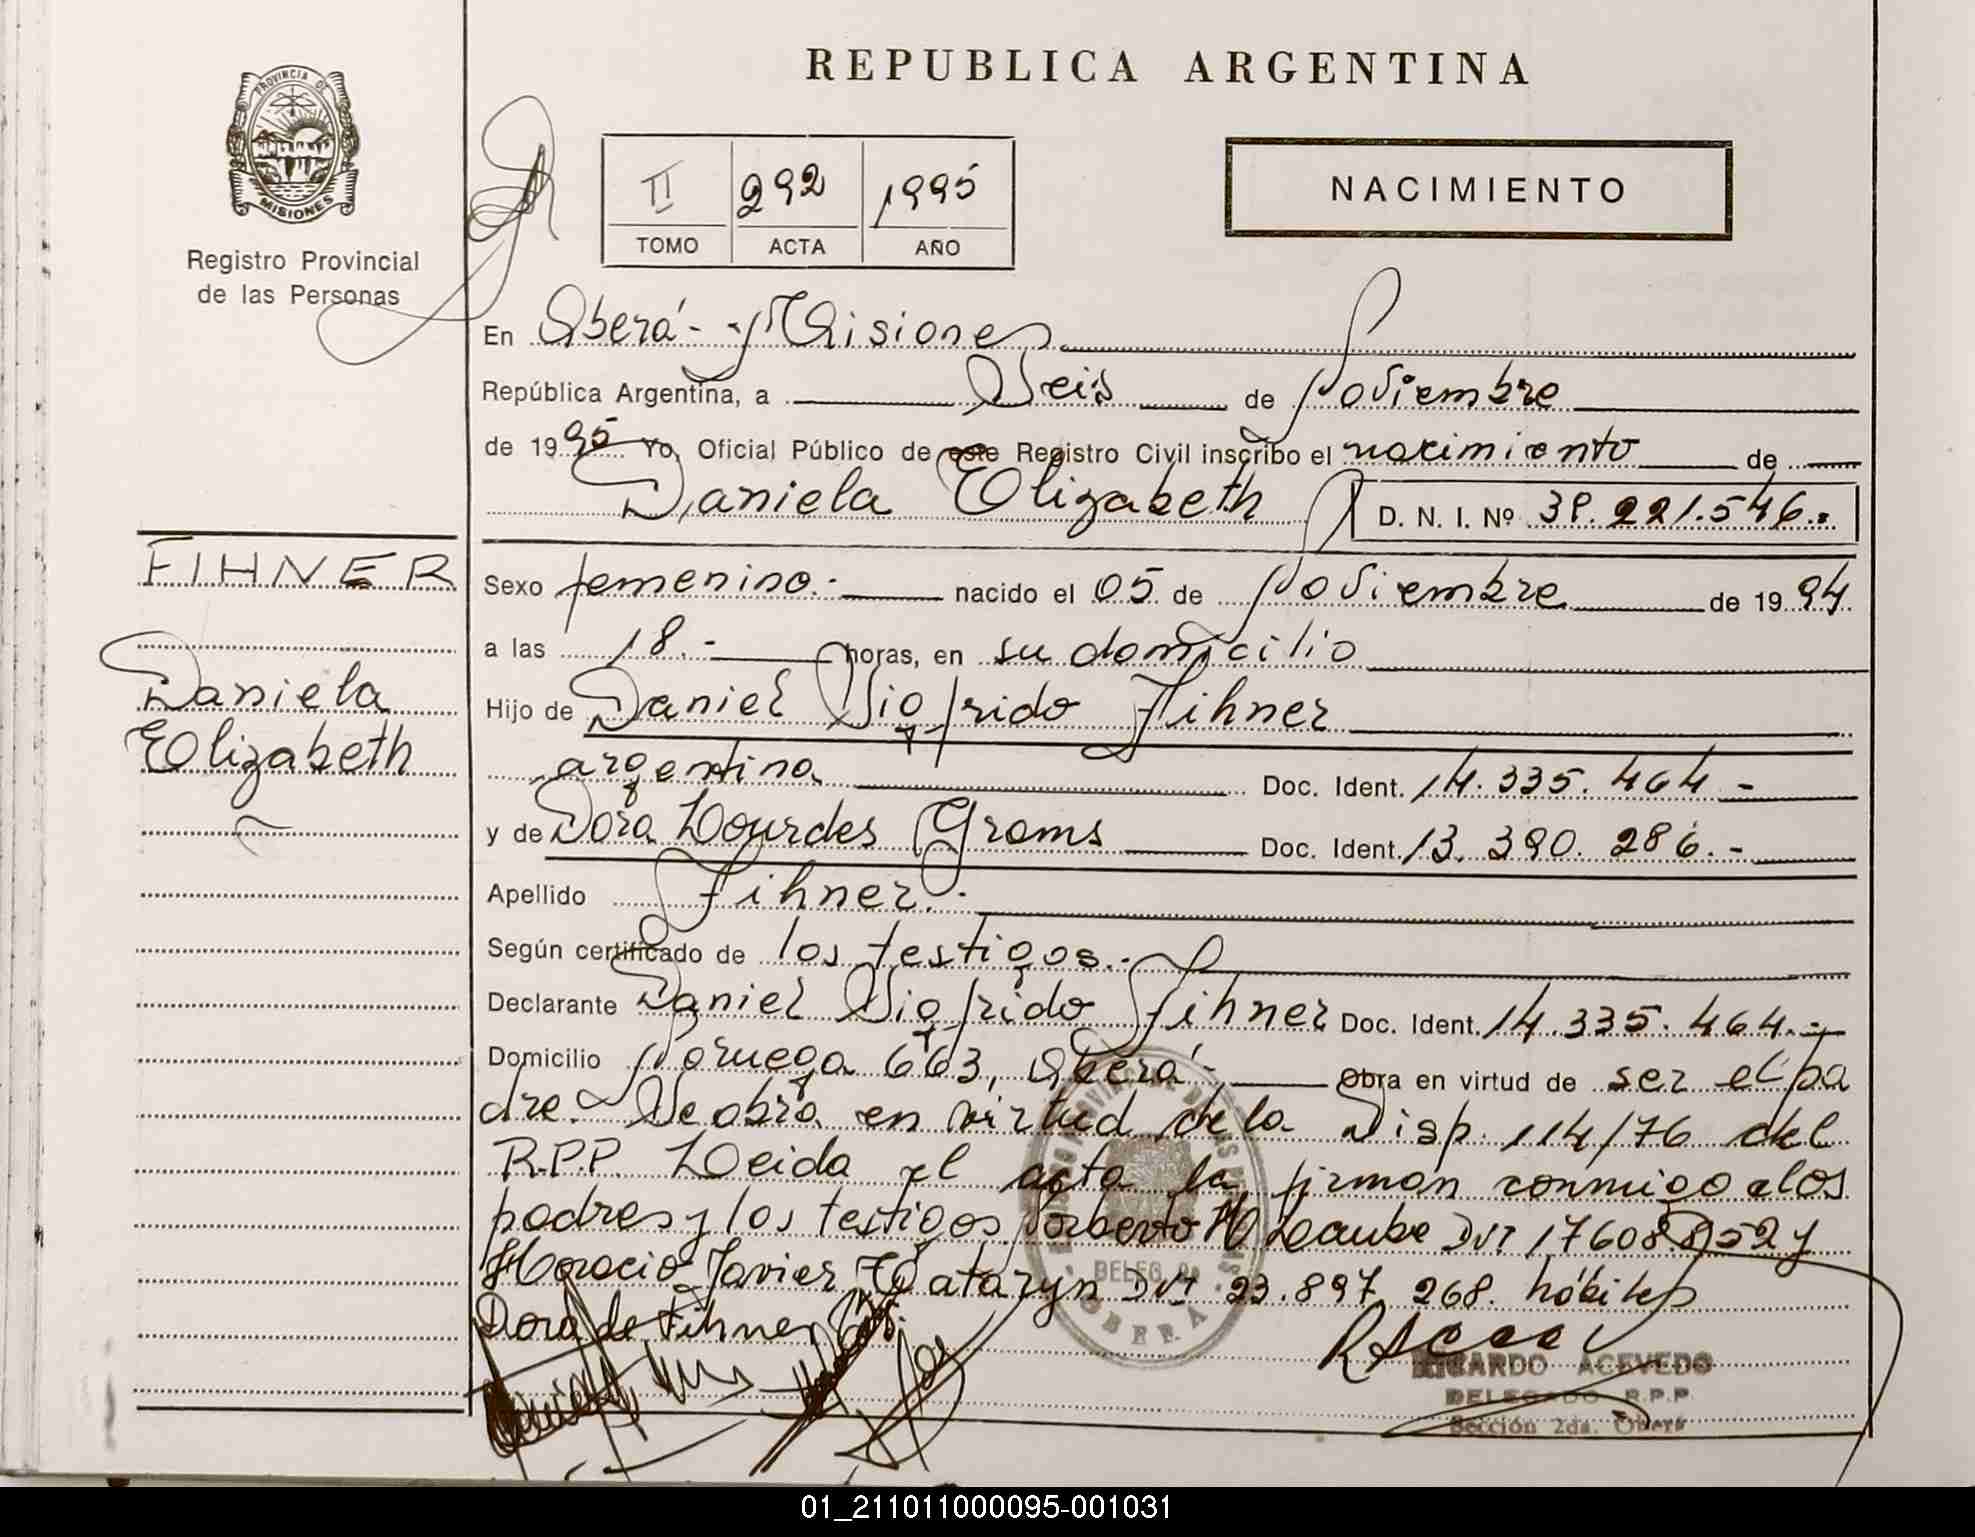 REPUBLICA ARGENTINA
PROVINCIA DE
MISIONES
Registro Provincial
de las Personas
II 292 1995
TOMO ACTA AÑO
NACIMIENTO
En Oberá - Misiones
República Argentina, a Seis de Noviembre
de 1995 Yo, Oficial Público de este Registro Civil inscribo el nacimiento de
Daniela Elizabeth D. N. I. Nº 38.221.546.-
FIHNER
Daniela
Elizabeth
Sexo femenino.- nacido el 05 de Noviembre de 1994
a las 18.- horas, en su domicilio
Hijo de Daniel Sigfrido Fihner
argentina Doc. Ident. 14.335.464-
y de Dora Lourdes Groms Doc. Ident. 13.390.286.-
Apellido Fihner.-
Según certificado de los testigos.-
Declarante Daniel Sigfrido Fihner Doc. Ident. 14.335.464.-
Domicilio Noruega 663, Oberá.- Obra en virtud de ser el pa
dre. Se obra en virtud de la Disp. 114/76 del
R.P.P. Leida el acta la firman conmigo los
padres y los testigos Norberto Laube DNI 17608.852 y
Horacio Javier DNI 23.897.268. hábiles
Dora de Fihner
RICARDO ACEVEDO
DELEGADO R.P.P.
Sección 2da. Oberá
DELEG. 2a
OBERA
01_211011000095-001031